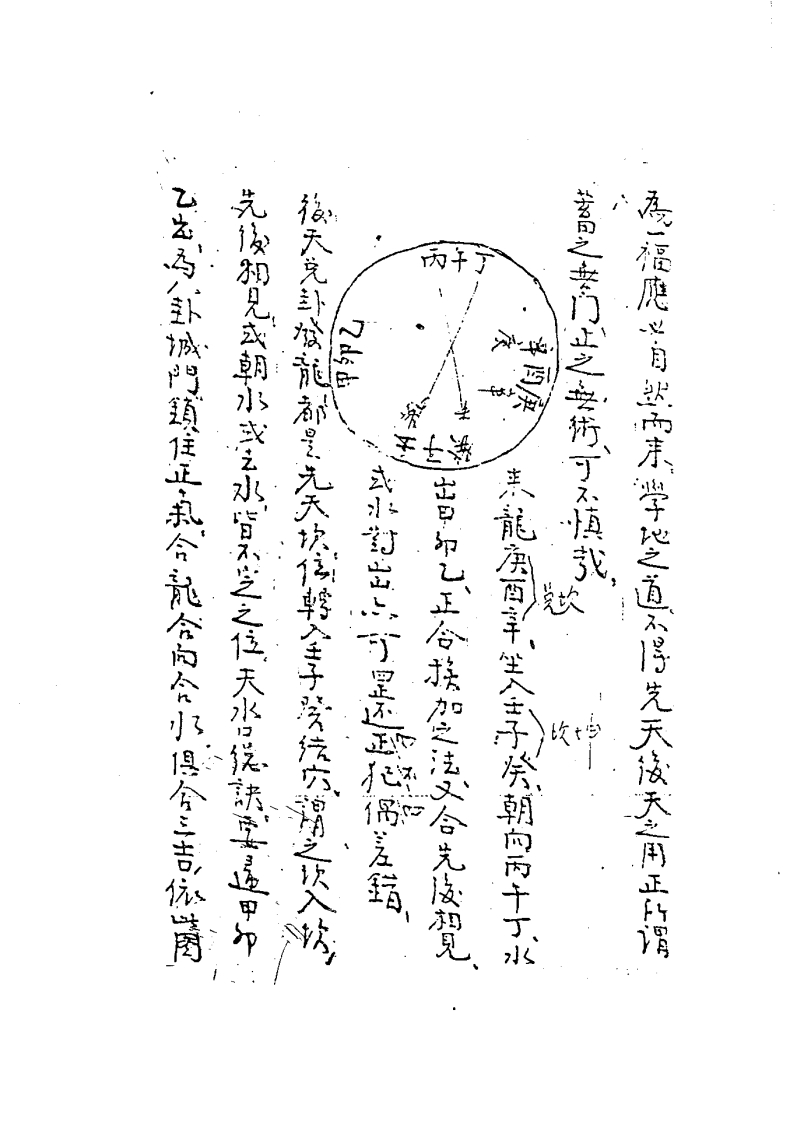 為一福應必自然而来、學地之道、不得先天後天之用正所谓
蓄之無门、止之無術、可不慎哉、
丙午丁
庚酉辛
乙卯甲
壬子癸
来龍庚酉辛、坐入壬子癸、朝向丙午丁、水
兑坎
坎坤
出甲卯乙、正合挨加之法、又合先後相見、
或水對出亦可罡还正犯偶差錯、
後天兑卦發龍都是先天坎位轉入壬子癸结穴、謂之坎入坎、
先後相見、或朝水或去水、皆不是之位、天水口總訣、要遶甲卯
乙出、為八卦城門鎖住正氣、合龍合向合水、俱合三吉、依圖